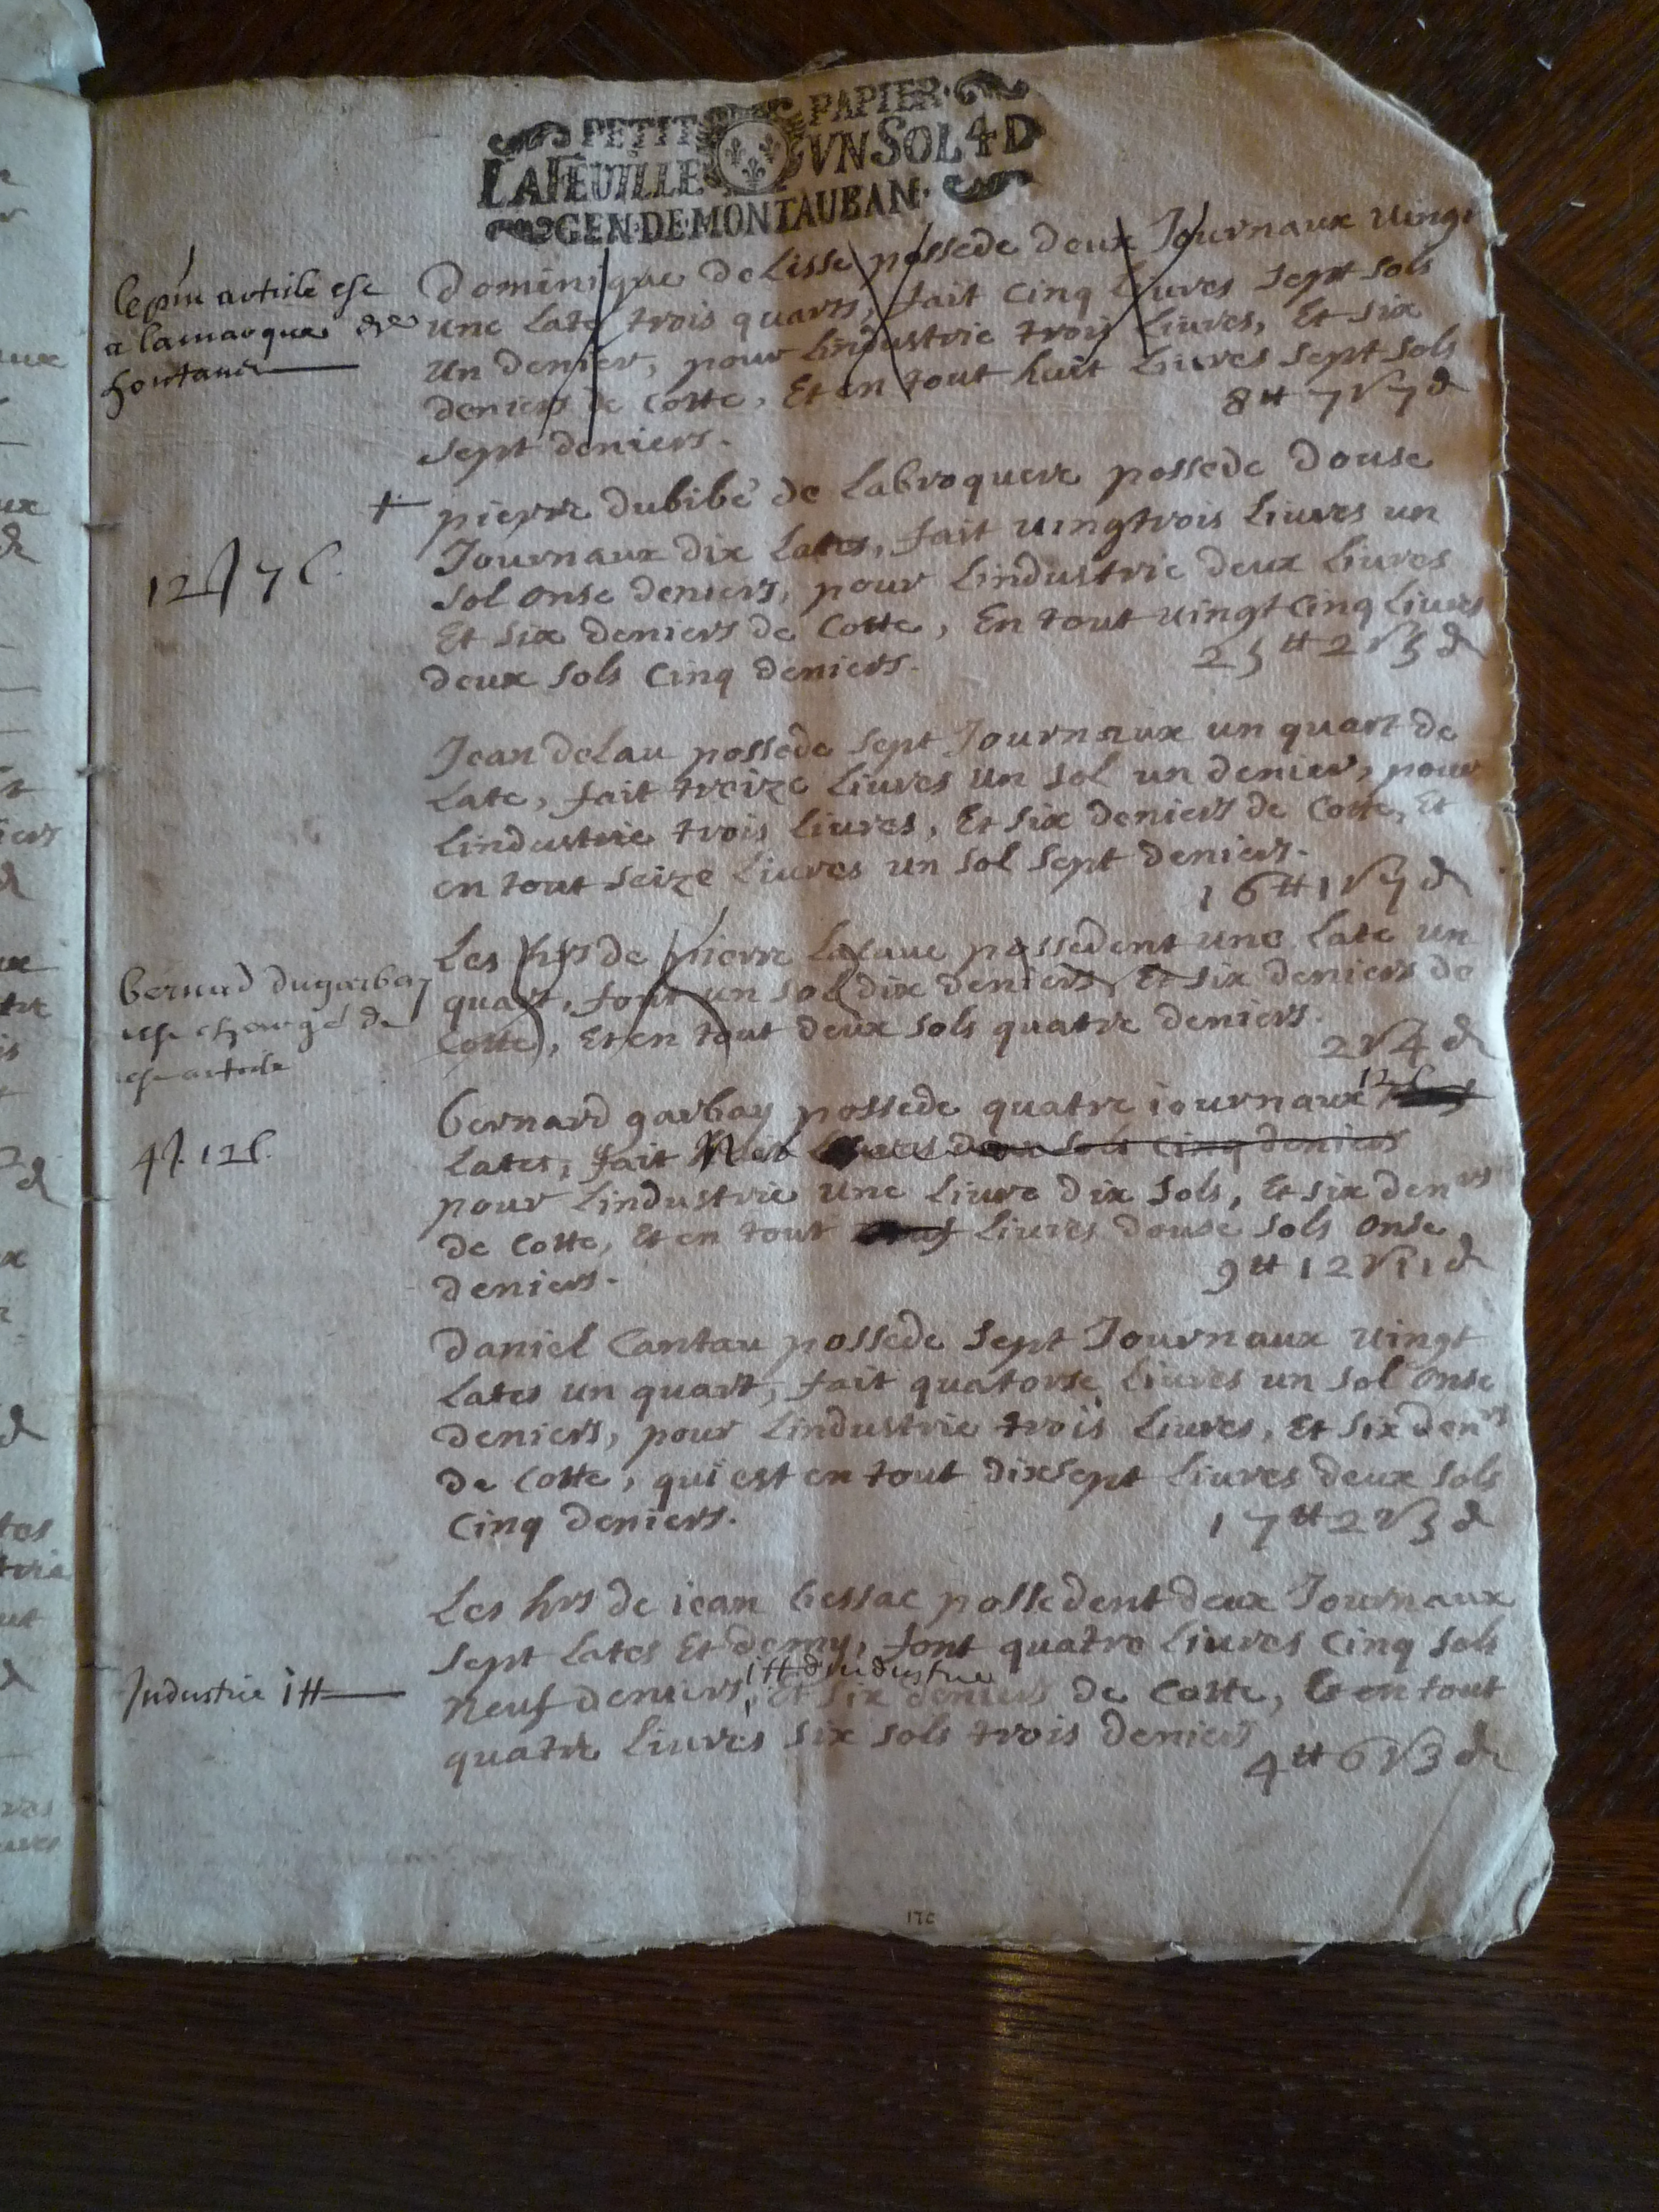 PETIT PAPIER
LA FEUILLE VN SOL 4 D
GEN · DE · MONTAUBAN ·
le pnt article est
a lamarque de
hontan
Dominique de Lisse possede deux Journaux uingt
une late trois quarts, fait cinq liures sept sols
un denier, pour lindustrie trois liures, Et six
deniers de Cotte, Et en tout huit liures sept sols
sept deniers.
8 tt 7 s 7 d
+ pierre dubibé de Labroquere possede douse
Journaux dix lates, fait uingtrois liures un
sol onse deniers, pour lindustrie deux liures
Et six deniers de Cotte, En tout uingt cinq liures
deux sols cinq deniers.
25 tt 2 s 5 d
12 J 7 l.
Jean delau possede sept Journaux un quart de
late, fait treize liures un sol un denier, pour
lindustrie trois liures, Et six deniers de Cotte, Et
en tout seize liures un sol sept deniers.
16 tt 1 s 7 d
bernard dugarbay
est chargé de
cest article
Les hrs de pierre Lacaue possedent une late un
quart, font un sol dix deniers, Et six deniers de
Cotte, Et en tout deux sols quatre deniers.
2 s 4 d
4 J. 12 l.
bernard garbay possede quatre iournaux 12 l
lates, fait deux sols cinq deniers
pour lindustrie une liure dix sols, Et six denrs
de Cotte, Et en tout liures douse sols onse
deniers.
9 tt 12 s 11 d
Daniel Cantau possede sept Journaux uingt
lates un quart, fait quatorse liures un sol onse
deniers, pour lindustrie trois liures, Et six denrs
de Cotte, qui est en tout dixsept liures deux sols
cinq deniers.
17 tt 2 s 5 d
Les hrs de iean bessac possedent deux Journaux
sept lates Et demy, font quatre liures cinq sols
1 tt dindustrie
neuf deniers, Et six deniers de Cotte, Et en tout
quatre liures six sols trois deniers
4 tt 6 s 3 d
Industrie 1 tt